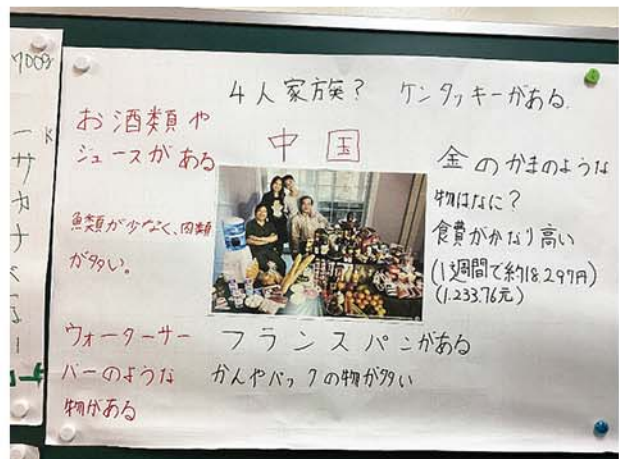 700g
4人家族? ケンタッキーがある.
お酒類や
ジュースがある
中国
金のかまのような
物はなに?
食費がかなり高い
(1週間で約18.297円)
(1.233.76元)
魚類が少なく、肉類
が多い。
ウォーターサー
バーのような
物がある
フランスパンがある
かんやパックの物が多い